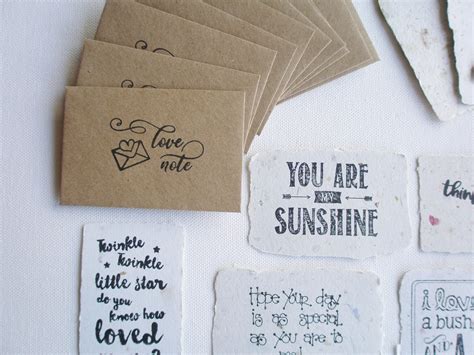 love
note
YOU ARE
MY
SUNSHINE
think
Twinkle
Twinkle
little star
do you
know how
loved
Hope your day
is as special
as you are to
i love
a bush
AND A